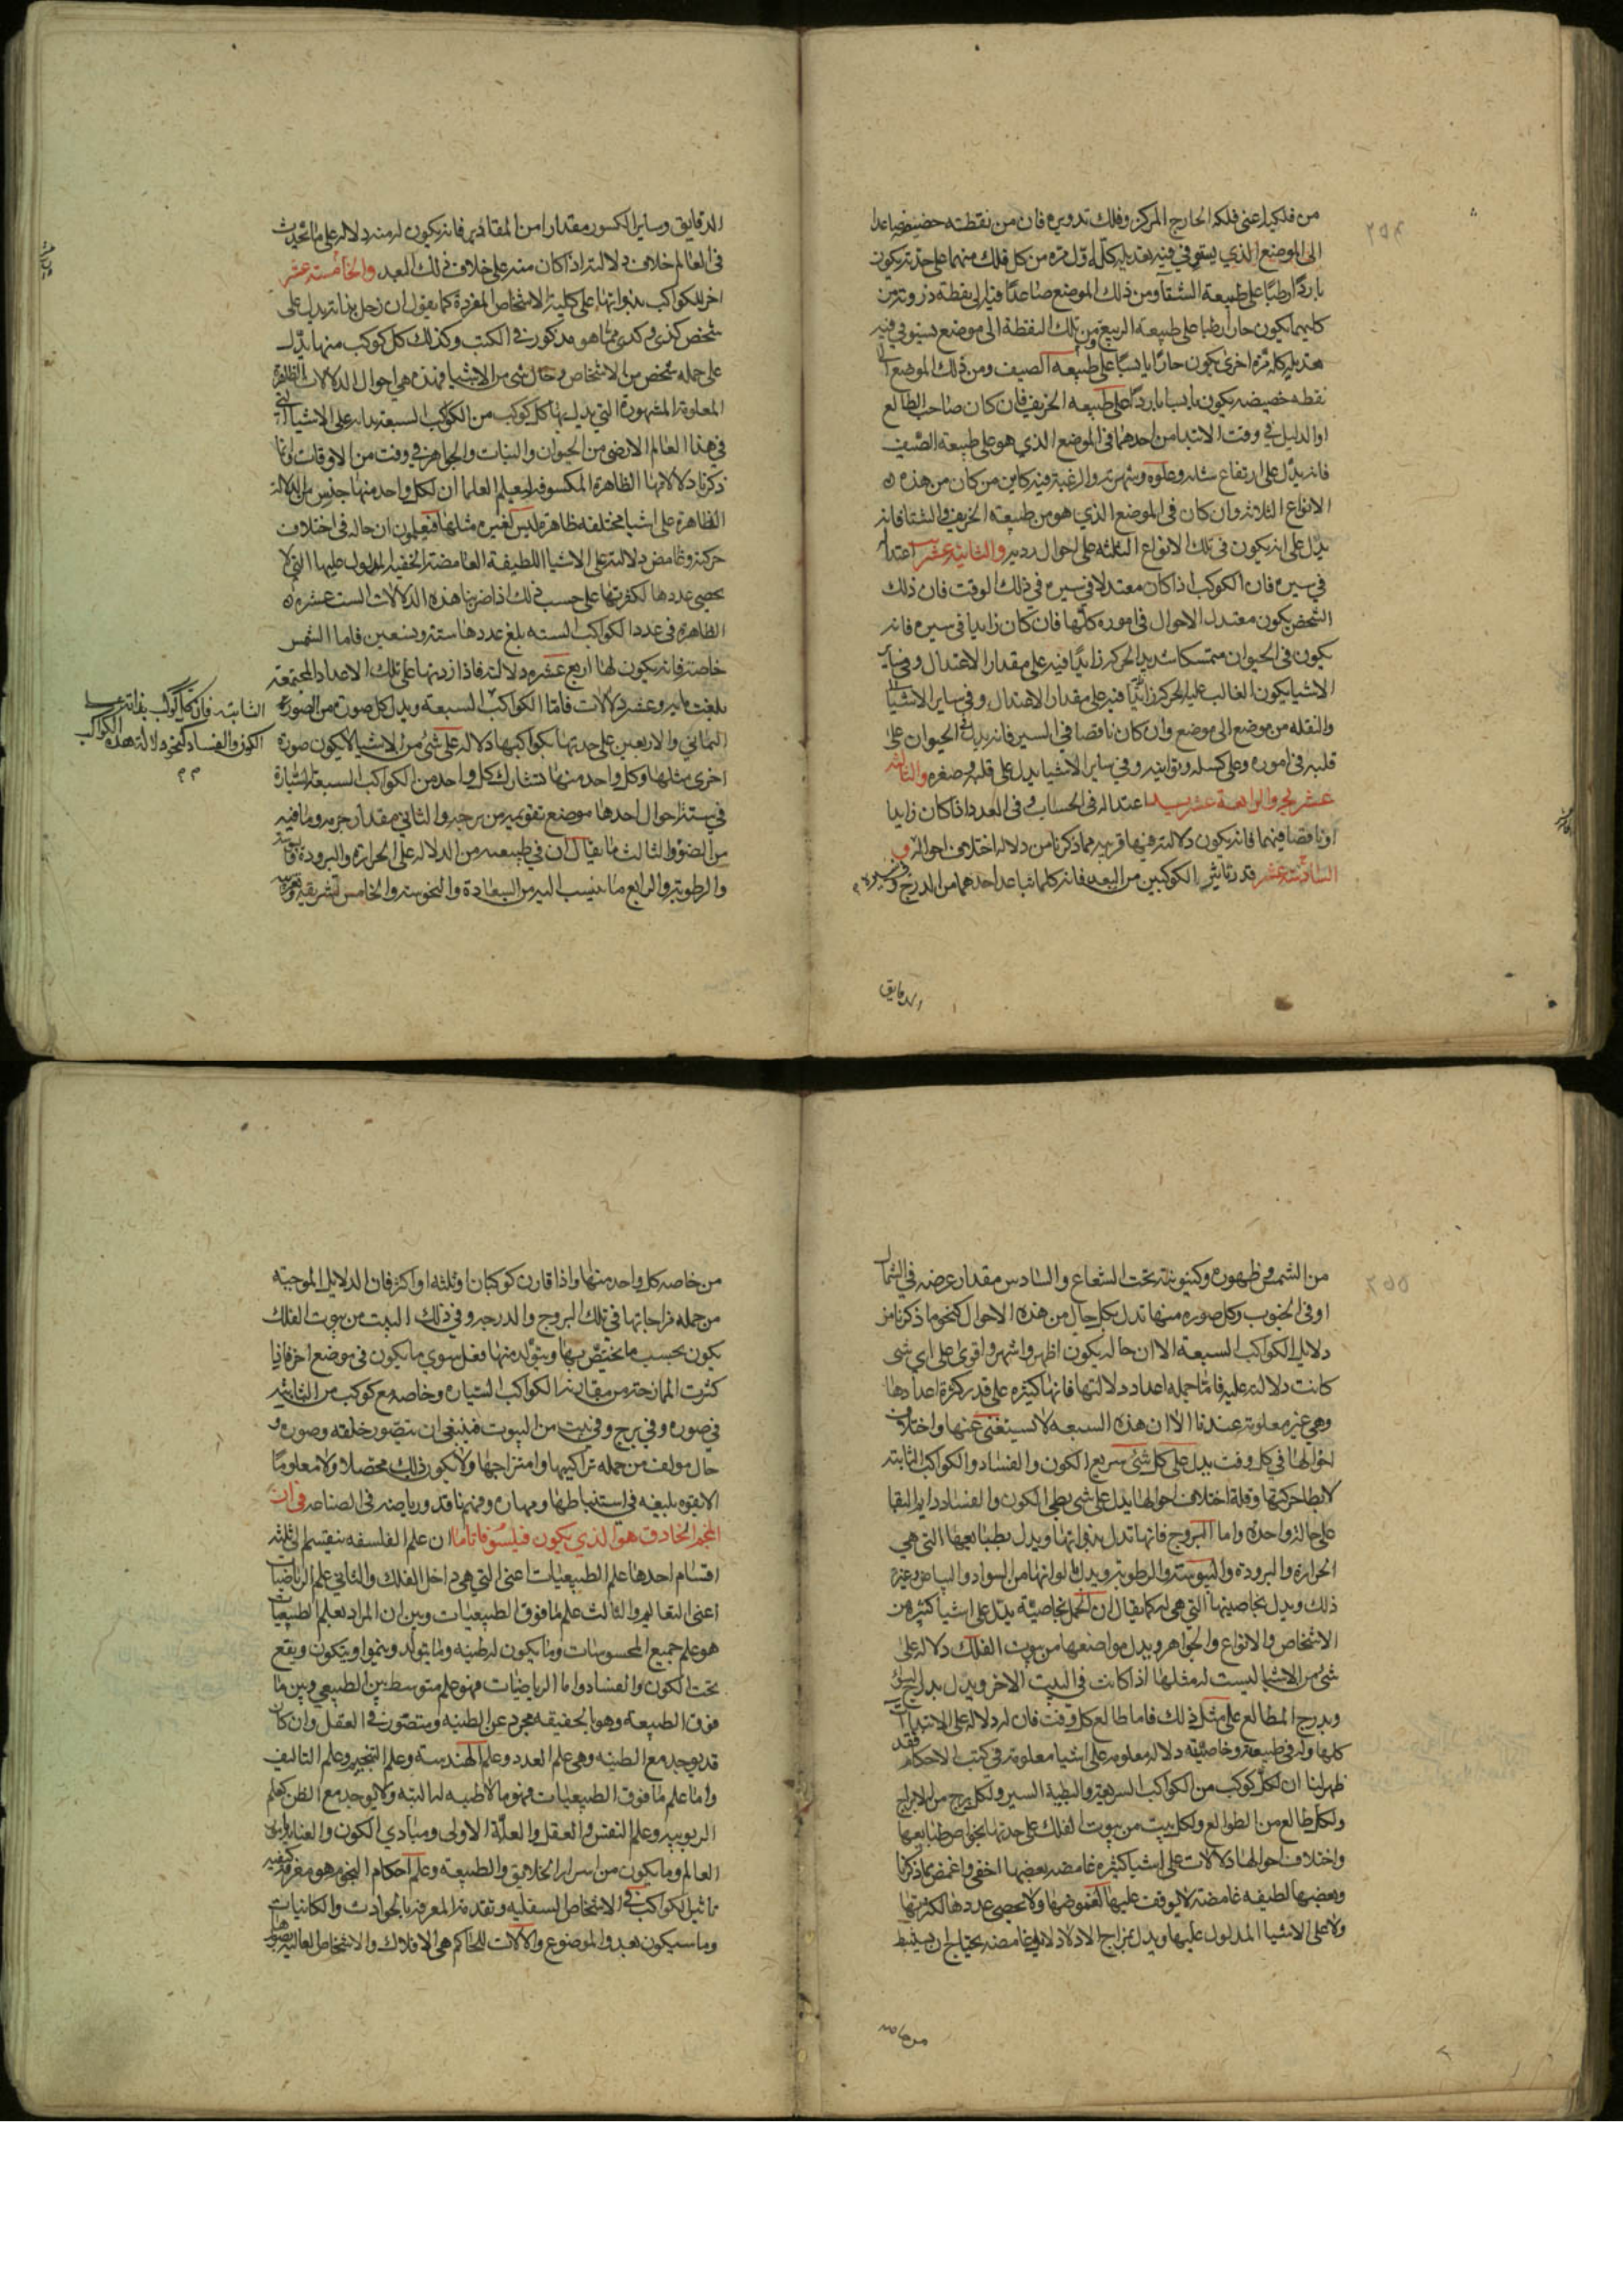 من فلكيه اعني فلكه الخارج المركز وفلك تدويره فان من نقطته حضيضه صاعدا
الى الموضع الذي يستوفي فيه تعديله كله اول مرة من كل فلك منهما على حدته يكون
باردا رطبا على طبيعة الشتا ومن ذلك الموضع صاعدا فيه الى نقطة ذروته من
كليهما يكون حارا رطبا على طبيعة الربيع ومن تلك النقطة الى موضع يستوفي فيه
تعديله كله مرة اخرى يكون حارا يابسا على طبيعة الصيف ومن ذلك الموضع الى
نقطه حضيضه يكون يابسا باردا على طبيعة الخريف فان كان صاحب الطالع
او الدليل في وقت الابتدا من احدهما في الموضع الذي هو على طبيعة الصيف
فانه يدل على ارتفاع شانه وعلوه وشهرته والرغبة فيه كاين من كان من هذه
الانواع الثلاثة وان كان في الموضع الذي هو من طبيعة الخريف والشتا فانه
يدل على انه يكون في تلك الانواع الثلثه على احوال رديه والثانية عشر اعتداله
في سيره فان الكوكب اذا كان معتدلا في سيره في ذلك الوقت فان ذلك
الشخص يكون معتدل الاحوال في اموره كلها فان كان زايدا في سيره فانه
يكون في الحيوان متمسكا شديد الحركة زايدا فيه على مقدار الاعتدال وفي ساير
الاشيا يكون الغالب عليه الحركة زايدا فيه على مقدار الاعتدال وفي ساير الاشيا
والنقله من موضع الى موضع وان كان ناقصا في السير فانه يدل في الحيوان على
قلبه في اموره وعلى كسله وتوانيه وفي ساير الاشيا يدل على قلته وصغره والثالثه
عشر والرابعة عشر اعتداله في الحساب وفي العدد اذا كان زايدا
او ناقصا فيهما فانه يكون دلالته فيها قريبه مما ذكرنا من دلالة اختلاف احواله و
السادسة عشر قدر تاثير الكوكبين من البعد فانه كلما تباعد احدهما من الدرج و
الدقايق
الدقايق وساير الكسور مقدارا من المقادير فانه يكون له منه دلاله على ما يحدث
في العالم خلاف دلالته اذا كان منه على خلاف ذلك البعد والخامسة عشر
اخر للكواكب بذواتها على كلية الاشخاص المفردة كما يقول ان زحل بذاته يدل على
شخص كذى وكذى مما هو مذكور في الكتب وكذلك كل كوكب منها يدل
على جمله شخص من الاشخاص وحال شي من الاشيا فهذه هي احوال الدلالات الظاهرة
المعلومة المشهورة التي يدل بها كل كوكب من الكواكب السبعة بذاته على الاشيا التي
في هذا العالم الارضي من الحيوان والنبات والجواهر في وقت من الاوقات وانما
ذكرنا دلالاتها الظاهرة المكشوفه ليعلم العلما ان لكل واحد منها جنس من الدلالة
الظاهرة على اشيا مختلفه ظاهرة ليس لغيره مثلها فيعلمون ان حاله في اختلاف
حركته وغامض دلالته على الاشيا اللطيفة الغامضة الخفيه المدلول عليها التي لا
يحصى عددها لكثرتها على حسب ذلك اذا ضربنا هذه الدلالات الست عشره
الظاهره في عدد الكواكب السته بلغ عددها ستة وتسعين فاما الشمس
خاصة فانه يكون لها اربع عشره دلاله فاذا زدتها على تلك الاعداد المجتمعة
بلغت مايه وعشر دلالات فاما الكواكب السبعة ويدل كل صورة من الصورة
الثماني والاربعين على حدتها بكواكبها دلاله على شي من الاشيا لا يكون صورة
اخرى مثلها وكل واحد منها تشارك كل واحد من الكواكب السبعة السيارة
في ستة احوال احدها موضع تقويمه من برجه والثاني مقدار جرمه وما فيه
من الضوؤ والثالث ما يقال ان في طبيعته من الدلاله على الحرارة والبرودة واليبوسة
والرطوبة والرابع ما ينسب اليه من السعادة والنحوسة والخامس تشريقه وتغريبه
الثابته فان كل كوكب بذاته على
الكون والفساد كنحو دلالة هذه الكواكب
من الشمس وظهوره وكينونته تحت الشعاع والسادس مقدار عرضه في الشمال
او في الجنوب وكل صوره منها تدل بكل حال من هذه الاحوال كنحو ما ذكرنا من
دلايل الكواكب السبعة الا ان حاله يكون اظهر واشهر واقوى على اي شي
كانت دلالته عليه فاما جمله اعداد دلالتها فانها كثيره على قدر كثرة اعدادها
وهي غير معلومة عندنا الا ان هذه السبعه لا نستغني عنها واختلاف
احوالها في كل وقت يدل على كل شي سريع الكون والفساد والكواكب الثابته
لابطا حركتها وقلة اختلاف احوالها يدل على شي بطي الكون والفساد دايم البقا
على حالة واحدة واما البروج فانها تدل بذواتها ويدل بطبايعها التي هي
الحرارة والبرودة واليبوسة والرطوبة ويدل بالوانها من السواد والبياض وغيره
ذلك ويدل بخاصيتها التي هي له كما يقال ان الحمل بخاصيته يدل على اشيا كثيره من
الاشخاص والانواع والجواهر ويدل مواضعها من بيوت الفلك دلاله على
شي من الاشيا ليست له مثلها اذا كانت في البيت الاخر ويدل بدرج السوا
وبدرج المطالع على مثل ذلك فاما طالع كل وقت فان له دلاله على الابتداات
كلها وله في طبيعته وخاصيته دلاله معلومه على اشيا معلومة في كتب الاحكام فقد
ظهر لنا ان لكل كوكب من الكواكب السريعة والبطية السير ولكل برج من الابراج
ولكل طالع من الطوالع ولكل بيت من بيوت الفلك على حدتها بخواص طبايعها
واختلاف احوالها دلالات على اشيا كثيره غامضه بعضها اخفى واغمض مما ذكرنا
وبعضها لطيفه غامضة لا يوقف عليها لغموضها ولا يحصى عددها لكثرتها
ولا على الاشيا المدلول عليها ويدل بمزاج الادلا دلايل غامضه يحتاج ان يستنبط
من خاصه
من خاصه كل واحد منها واذا قارن كوكبان او ثلثه او اكثر فان الدلايل الموجبة
من جمله مزاجاتها في تلك البروج والدرجه وفي ذلك البيت من بيوت الفلك
يكون بحسب ما يختص بها ويتولد منها وفعل سوى ما يكون في موضع اخر فاذا
كثرت الممازجة من مقارنة الكواكب السياره وخاصه مع كوكب من الثابته
في صوره وفي برج وفي بيت من البيوت فينبغي ان يتصور خلقه وصوره و
حال مولف من جمله تراكيبها وامتزاجها ولا يكون ذلك محصلا ولا معلوما
الا بقوه بليغه في استنباطها ومهاره وفهم نافذ ورياضه في الصناعه في ان
المنجم الحاذق هو الذي يكون فيلسوفا تاما ان علم الفلسفه ينقسم الى ثلثه
اقسام احدها علم الطبيعيات اعني التي هي داخل الفلك والثاني علم الرياضيات
اعني التعاليم والثالث علم ما فوق الطبيعيات وبين ان المراد بعلم الطبيعيات
هو علم جميع المحسوسات وما يكون له طينه وما يتولد وينموا ويتكون ويقع
تحت الكون والفساد واما الرياضيات فهو علم متوسط بين الطبيعي وبين ما
فوق الطبيعة وهو بالحقيقه مجرد عن الطينه ومتصور في العقل وان كان
قد يوجد مع الطينه وهي علم العدد وعلم الهندسة وعلم التنجيم وعلم التاليف
واما علم ما فوق الطبيعيات فهو ما لا طينه له البتة ولا يوجد مع الطين كعلم
الربوبيه وعلم النفس والعقل والعلة الاولى ومبادي الكون والعناية
العالم وما يكون من اسرار الخلايق والطبيعة وعلم احكام النجوم هو معرفة كيفيه
تاثير الكواكب في الاشخاص السفليه وتقدمة المعرفه بالحوادث والكاينات
وما سيكون بعد والموضوع والالات للحاكم هي الافلاك والاشخاص العالية